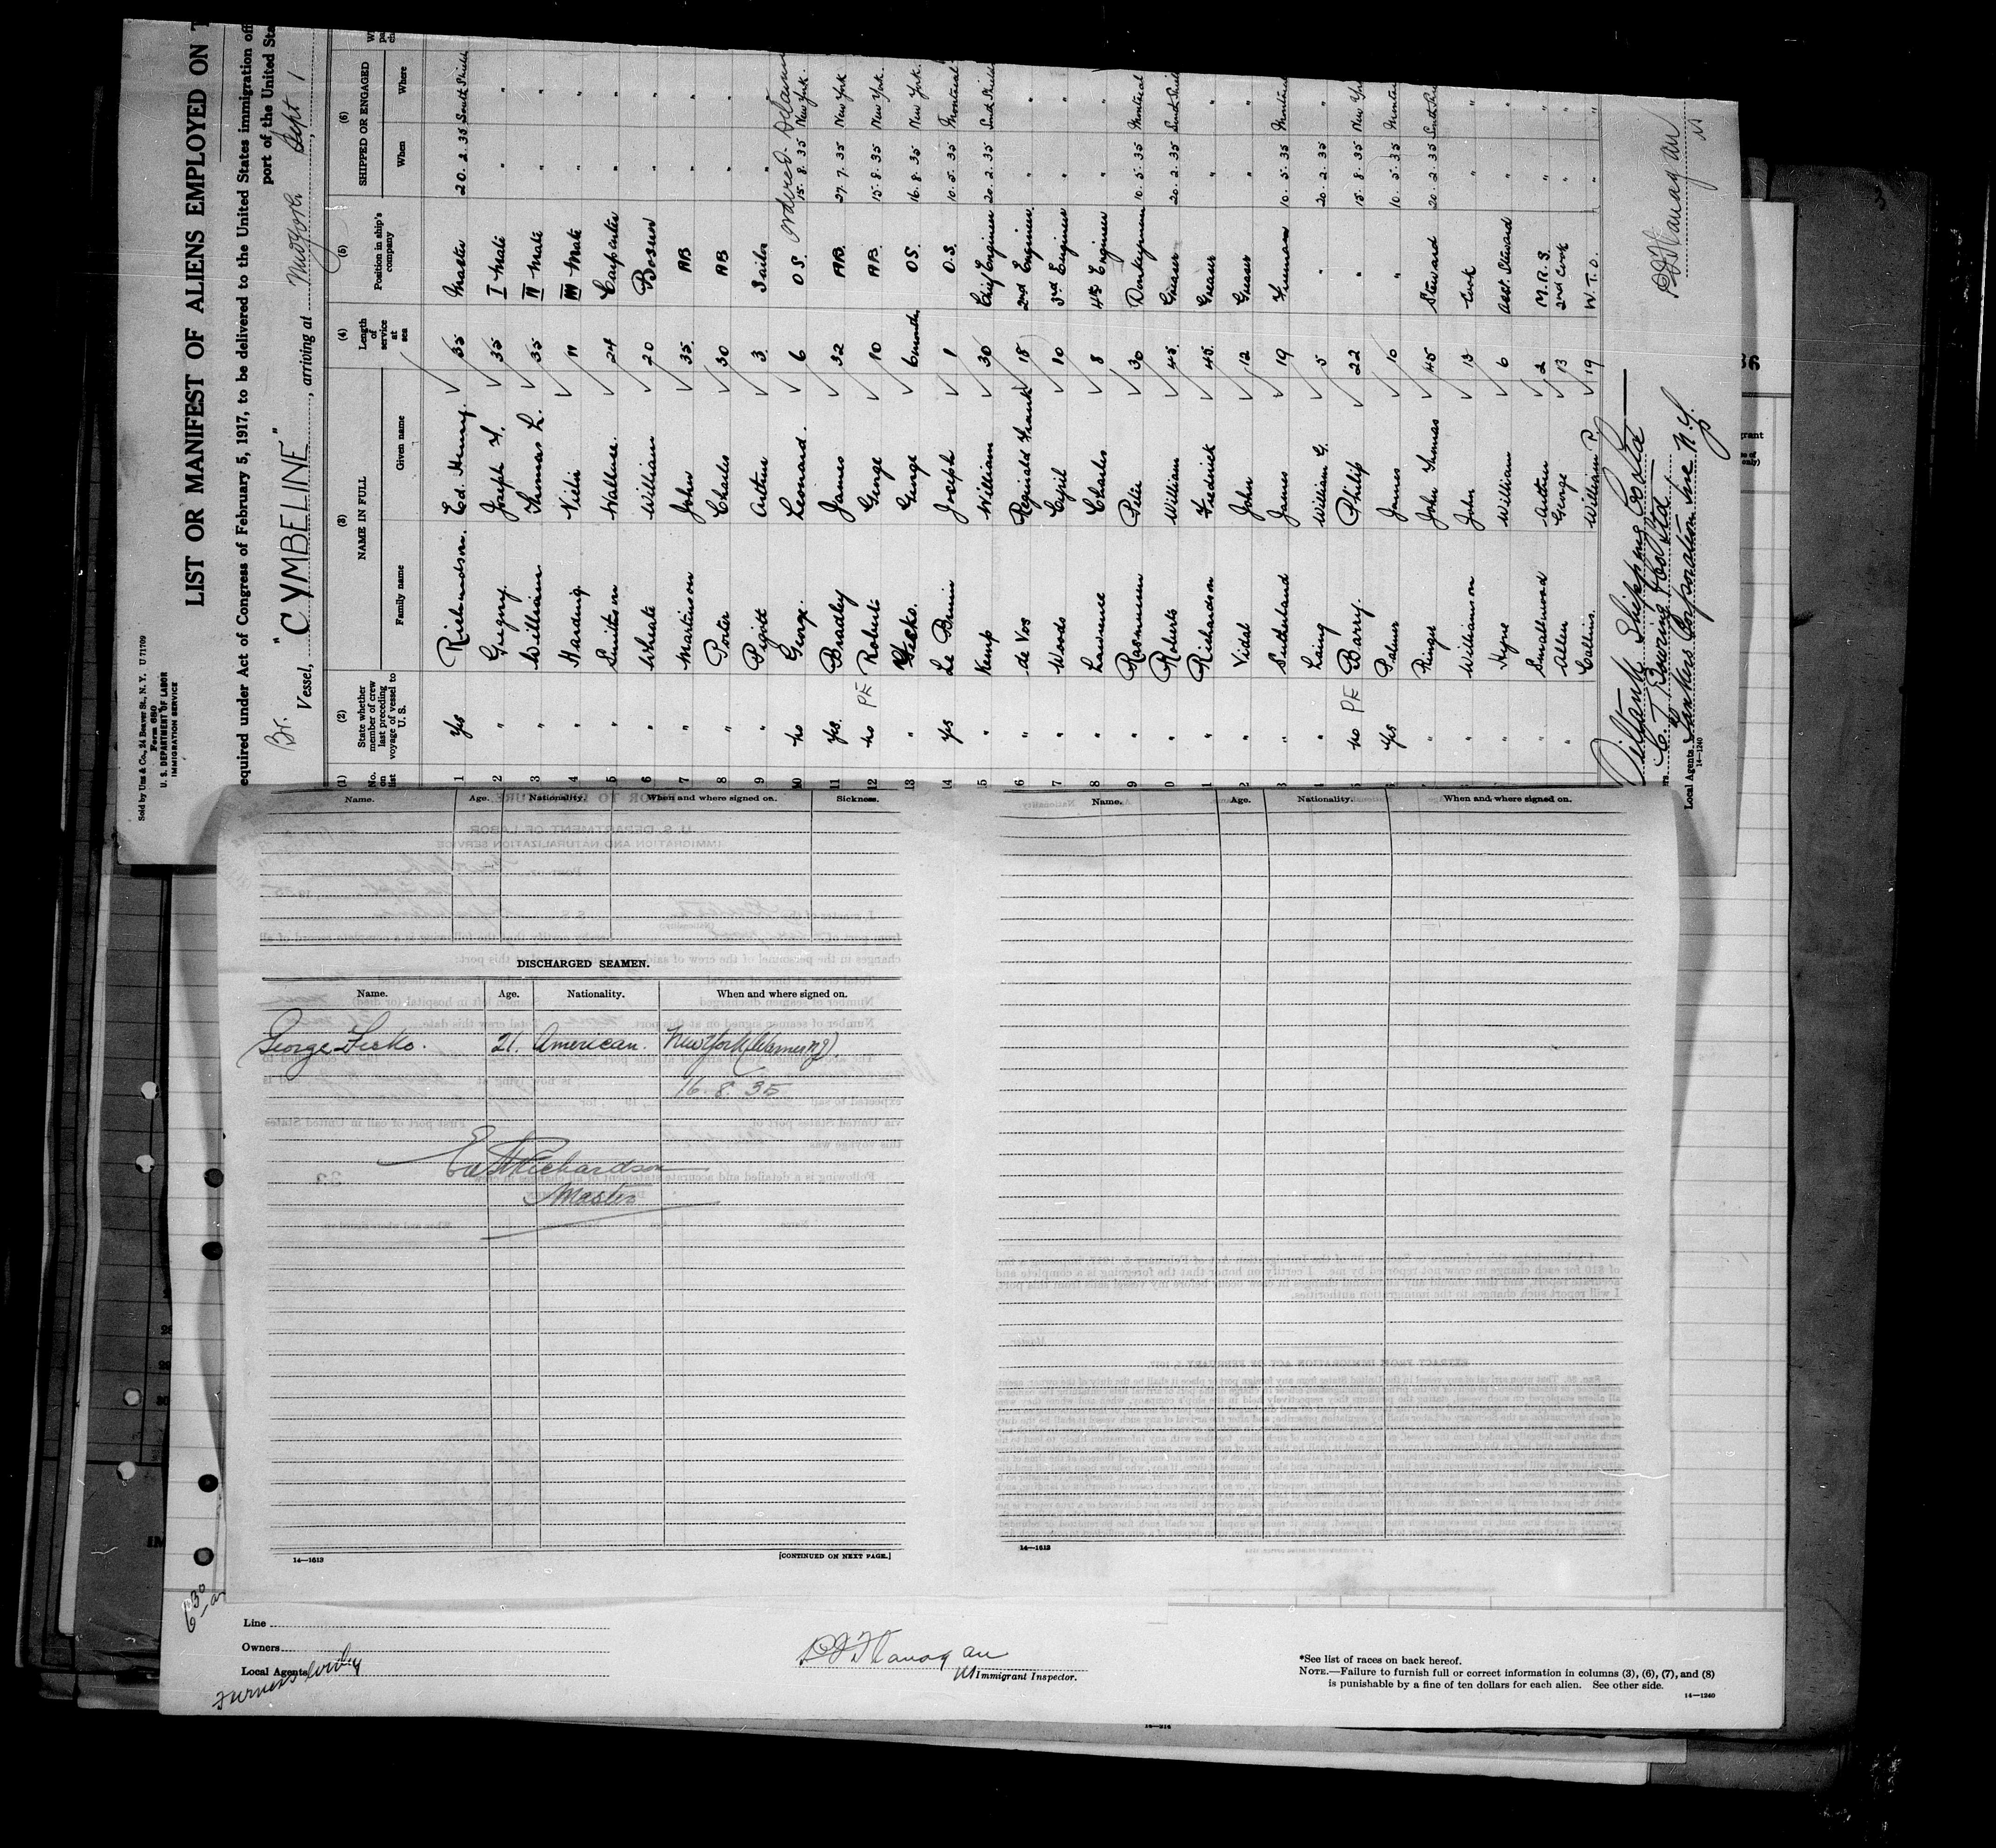 Sold by Unz & Co., 24 Beaver St., N. Y. U 71709
Form 680
U. S. DEPARTMENT OF LABOR
IMMIGRATION SERVICE
LIST OR MANIFEST OF ALIENS EMPLOYED ON
equired under Act of Congress of February 5, 1917, to be delivered to the United States immigration
port of the United
Br. Vessel, "CYMBELINE", arriving at New York Sept 1
(1) No. on list
(2) State whether member of crew last preceding voyage of vessel to U. S.
(3) NAME IN FULL Family name Given name
(4) Length of service at sea
(5) Position in ship's company
(6) SHIPPED OR ENGAGED When Where
1 Yes Richardson. Ed. Henry. 35 Master 20. 2. 35 South Shield
2 " Gregory. Joseph H. 35 I Mate " "
3 " William Thomas L. 35 II Mate " "
4 " Harding. 11 III Mate " "
5 " Wallace. 24 Carpenter " "
6 " Wheate William 20 Bosun " "
7 " Martinson John 35. AB " "
8 " Porter Charles 30 AB " "
9 " Pigott Arthur 3 Sailor " "
10 no George. Leonard. 6 OS. 15. 8. 35 New York.
11 Yes. Bradley James 32 AB. 27. 7. 35 New York
12 no PE Roberts George 10 AB. 15. 8. 35 New York.
13 " Fecko. George 6 months OS. 16. 8. 35 New York.
14 yes Le Joseph 1 O.S. 10. 5. 35 Montreal
5 " Kemp William 30 Chief Engineer 20. 2. 35 South Shield
6 " de Vos Reginald Frank 18 2nd Engineer " "
7 " Woods Cyril 10 3rd Engineer " "
8 " Lawrence Charles 8 4th Engineer " "
9 " Rasmussen Peter 30 Donkeyman 10. 5. 35 Montreal
0 " Roberts William 45. Greaser 20. 2. 35 South Shiel
1 " Richardson Fredrick 45. Greaser " "
2 " Vidal John 12 Greaser " "
3 " Sutherland James 19 Fireman 10. 5. 35 Montreal
" Laing William G. 5 " 20. 2. 35 "
5 no PE Barry. Philip 22 " 15. 8. 35 New Yo
yes Palmer James 10 " 10. 5. 35 Montrea
" Ringer John Thomas 45 Steward 20. 2. 35 South Shi
" Williamson John 13 Cook " "
" Hyne William 6 Asst. Steward " "
" Smallwood Arthur 2 M.R.S. " "
" Allen George 13 2nd Cook " "
Collins. William P. 19 W. T. O. " "
Oiltank Shipping Co Ltd
C. T. Bowring & Co Ltd.
Local Agents Tankers Corporation Inc N.Y.
14—1240
Name. Age. Nationality. When and where signed on. Sickness.
Name. Age. Nationality. When and where signed on.
DISCHARGED SEAMEN.
Name. Age. Nationality. When and where signed on.
George Fecko. 21. American. New York
16. 8. 35
Ed H Richardson
Master
14—1613
[CONTINUED ON NEXT PAGE.]
14—1613
Line
Owners
Local Agents Furness Withy
D J Flanagan
Immigrant Inspector.
*See list of races on back hereof.
NOTE.—Failure to furnish full or correct information in columns (3), (6), (7), and (8)
is punishable by a fine of ten dollars for each alien. See other side.
14—1240